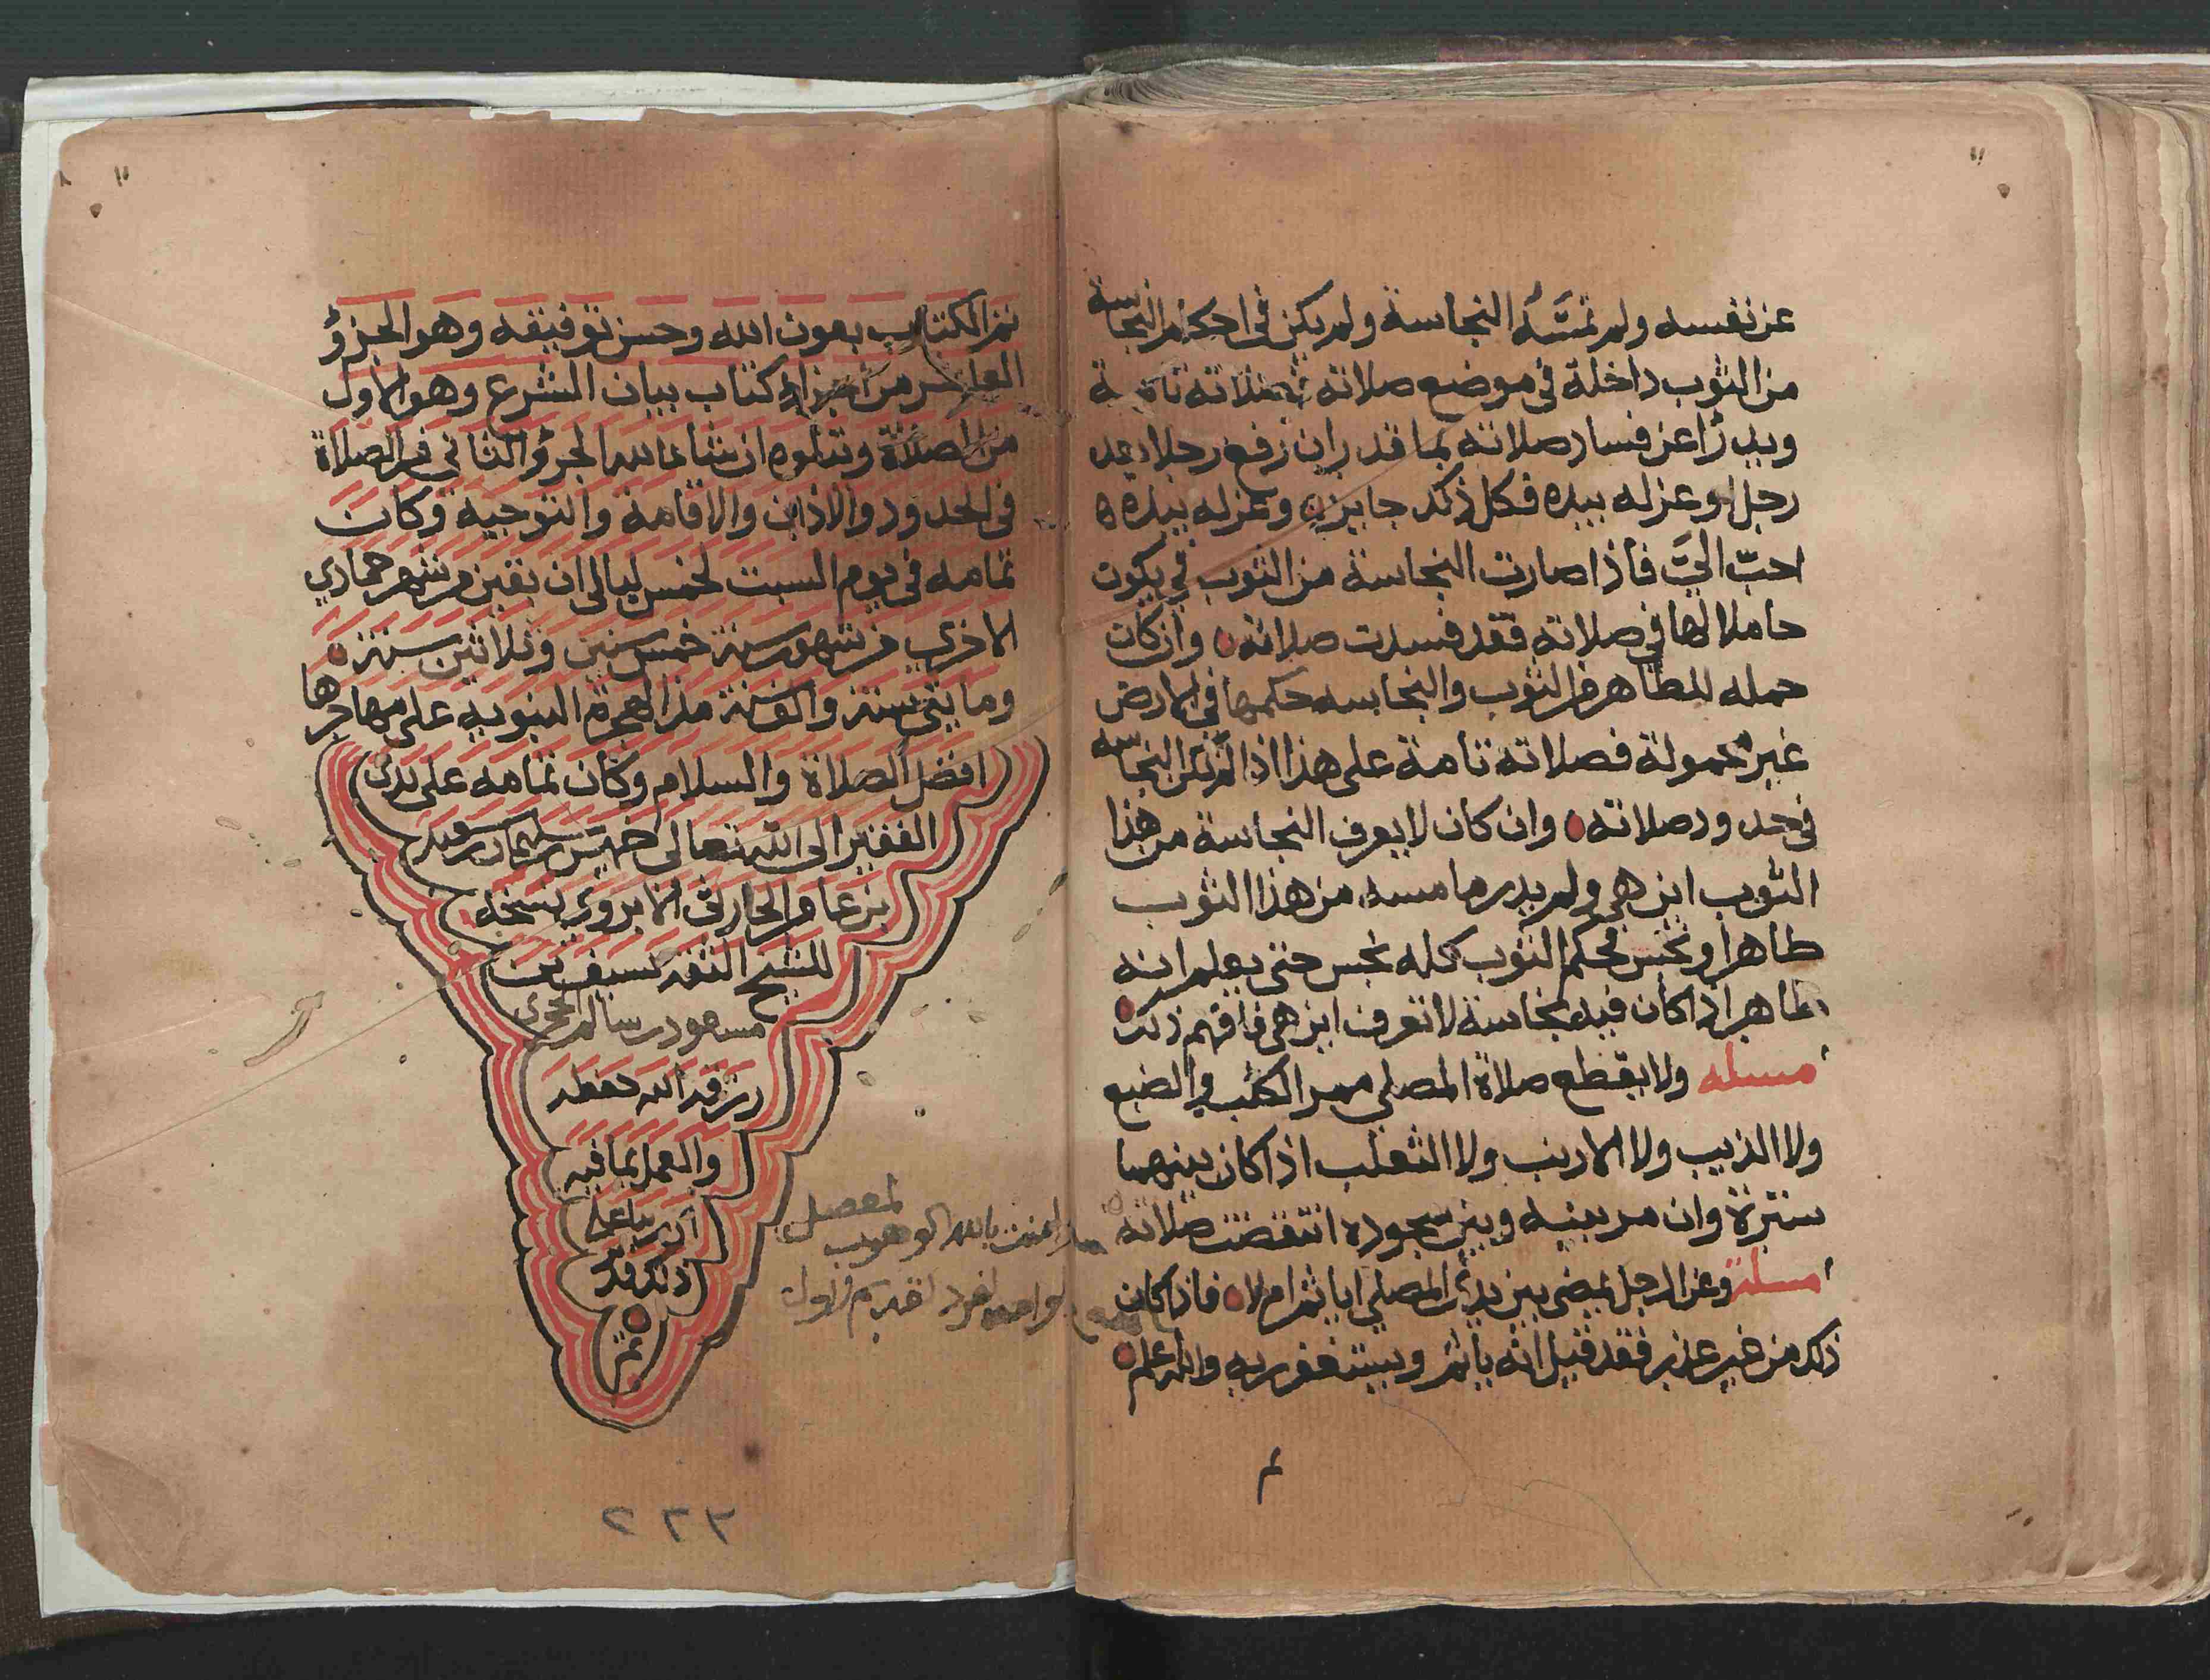 عن نفسه ولم تمسّه النجاسة ولم يكن في احكام النجاسة
من الثوب داخلة في موضع صلاته فصلاته تامة
ويدرأ عن فساد صلاته بما قدر ان رفع رجلا بعد
رجل او عزله بيده فكل ذلك جايز وعزله بيده ه
احبّ اليّ فاذا صارت النجاسة من الثوب في يكون
حاملا لها في صلاته فقد فسدت صلاته ه وان كان
حمله للطاهر من الثوب والنجاسه حكمها في الارض
غير محمولة فصلاته تامة على هذا اذا لم تكن النجاسه
في حدود صلاته ه وان كان لا يعرف النجاسة من هذا
الثوب اين هي ولم يدر ما مسه من هذا الثوب
طاهر او نجس فحكم الثوب كله نجس حتى يعلم انه
طاهر اذا كان فيه نجاسة لا تعرف اين هي فافهم ذلك ه
مسله ولا يقطع صلاة المصلي ممر الكلب والضبع
ولا الذيب ولا الارنب ولا الثعلب اذا كان بينهما
سترة وان مر بينه وبين سجوده انتقضت صلاته
مسلة وعن الرجل يمضي بين يدي المصلي ايا ثم ام لا ه فاذا كان
ذلك من غير عذر فقد قيل انه ياثم ويستغفر ربه والله اعلم ه
م
تم الكتاب بعون الله وحسن توفيقه وهو الجزؤ
العاشر من اجزاء كتاب بيان الشرع وهو الاول
من الصلاة ويتلوه ان شا الله الجزؤ الثاني من الصلاة
في الحدود والاذان والاقامة والتوجيه وكان
تمامه في يوم السبت لخمس ليالى ان بقين من شهر جمادي
الاخرى من شهور سنة خمس سنين وثلاثين سنة ه
ومايتي سنة والف سنة من الهجرة النبويه على مهاجرها
افضل الصلاة والسلام وكان تمامه على يدي
الفقير الى الله تعالى خميس بن سليمان بن سعيد
بن عامر الحارثي الابروي نسخه
للشيخ الثقه سيف بن
مسعود بن سالم
رزقه الله حفظه
والعمل بما فيه
انه ربنا على
ذلك قدير
ه
تم
٢٣٢